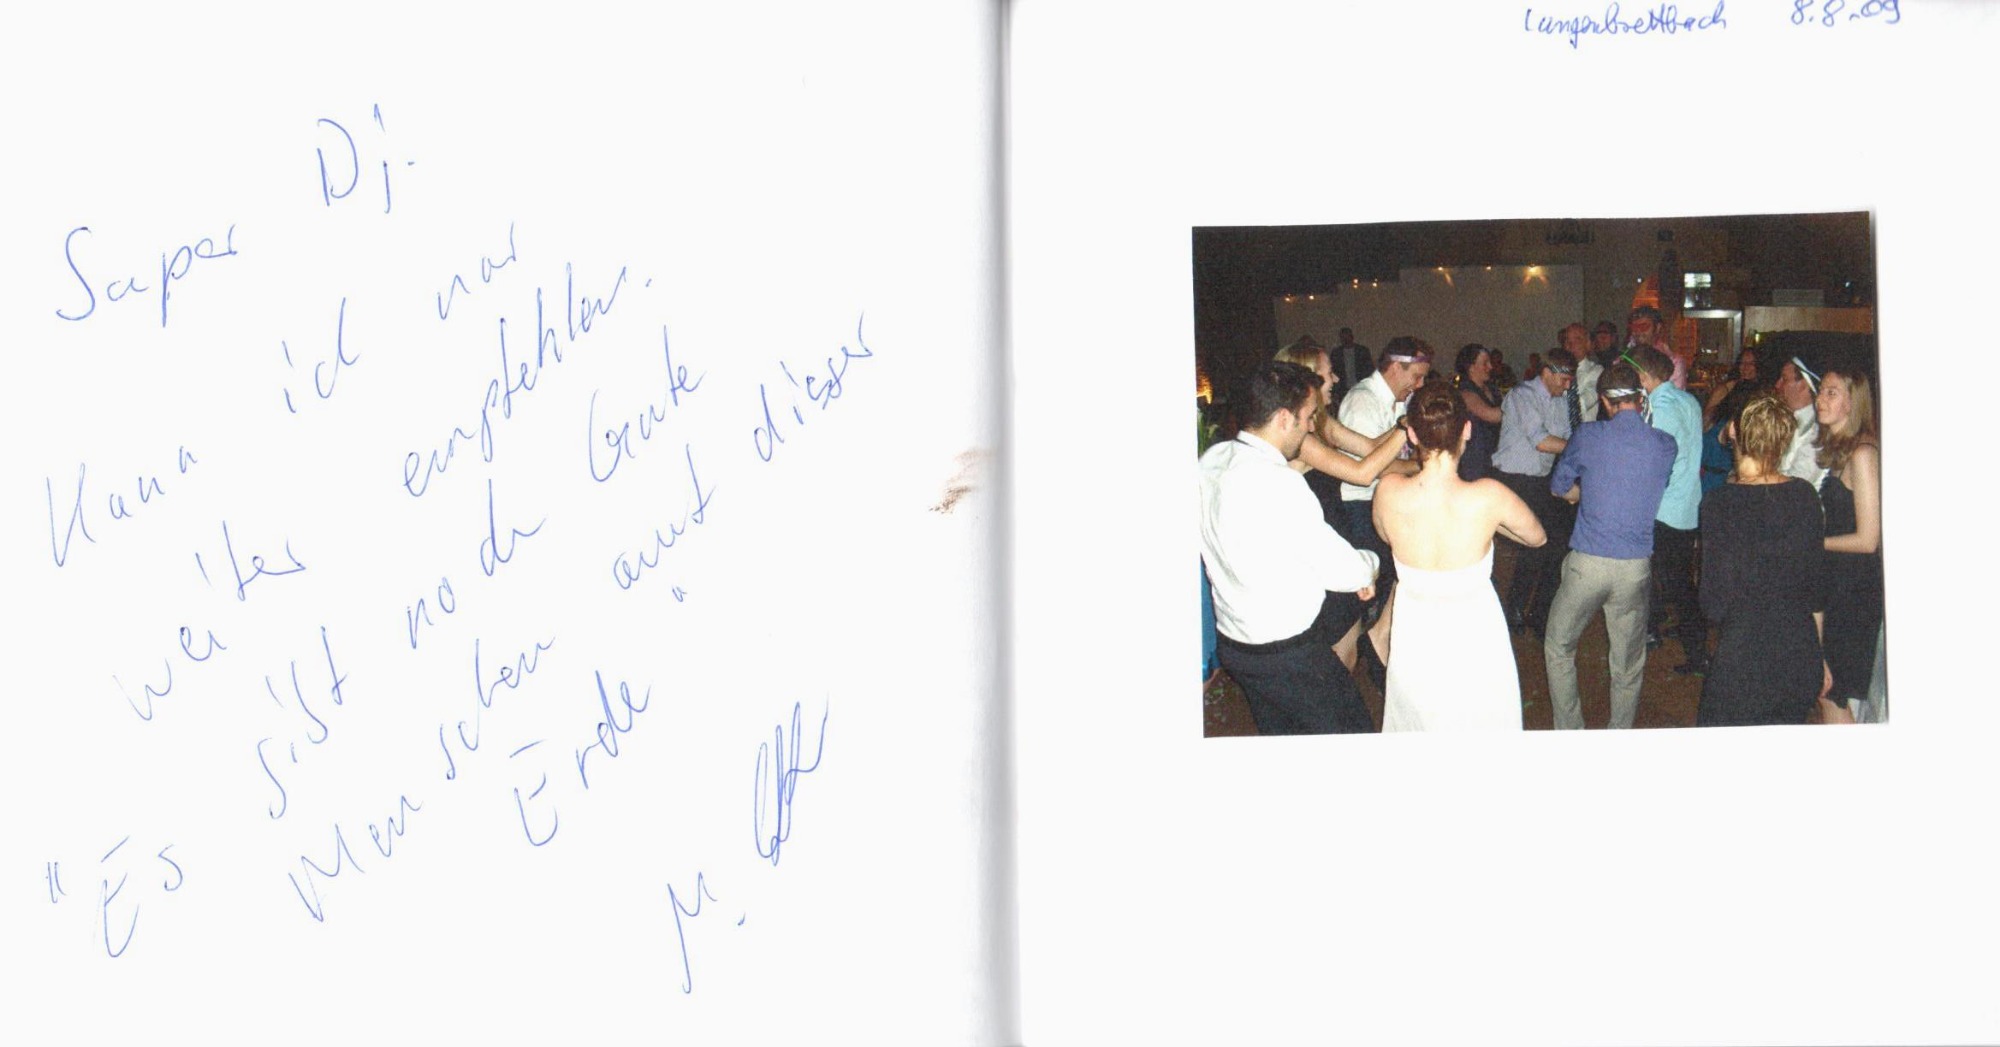 Super Dj.
Kann ich nur
weiter empfehlen.
"Es gibt noch Gute
Menschen auf dieser
Erde"
M.
Langenbrettbach 8.8.09